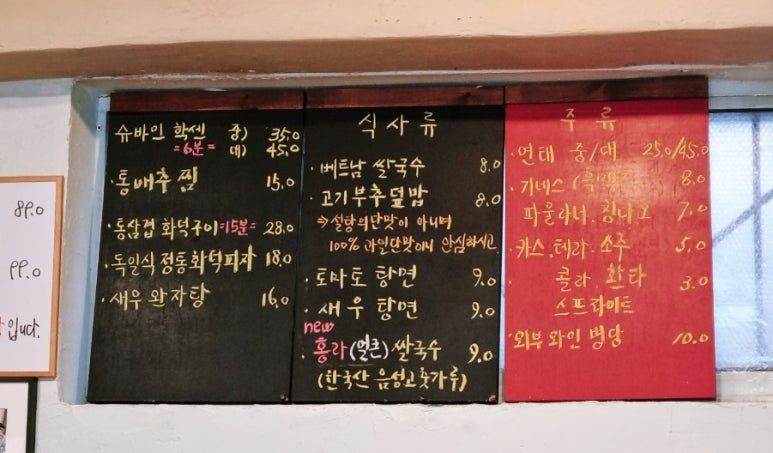 89.0
99.0
입니다.
슈바인 학센 중) 35.0
=6분= 대) 45.0
·통배추찜 15.0
·통삼겹 화덕구이=15분= 28.0
·독일식 정통화덕피자 18.0
·새우 완자탕 16.0
식사류
·베트남 쌀국수 8.0
·고기부추덮밥 8.0
⇒설탕의단맛이 아니며
100% 과일단맛이니 안심하시고
·토마토 탕면 9.0
·새우 탕면 9.0
new
·홍라(얼큰)쌀국수 9.0
(한국산 음성고춧가루)
주류
·연태 중/대 25.0/45.0
·기네스(흑맥주) 8.0
파울라너.칭다오 7.0
·카스.테라.소주 5.0
·콜라.환타 3.0
스프라이트
·외부와인 병당 10.0